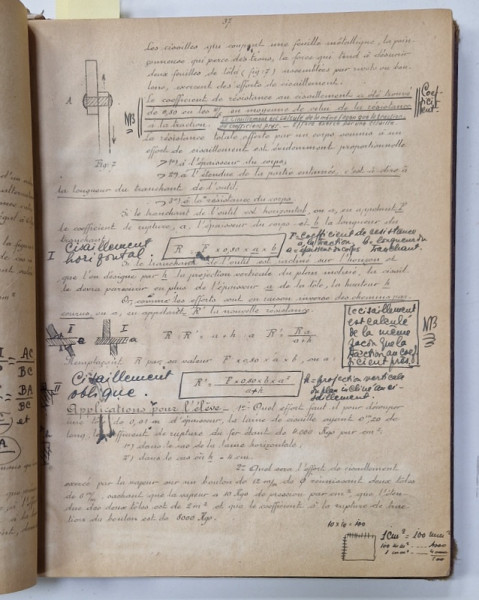 37
Les cisailles qui coupent une feuille métallique, la poin-
çonneuse qui perce des trous, la force qui tend à désunir
deux feuilles de tôle (fig: 7) assemblées par rivets ou bou-
lons, exercent des efforts de cisaillement.
Le coefficient de résistance au cisaillement
de 0,80 ou les 4/5 au maximum de celui de la résistance
à la traction.
Coef-
ficient.
NB
La résistance totale offerte par un corps soumis à un
effort de cisaillement est évidemment proportionnelle
A
Fig: 7
1º à l'épaisseur du corps,
2º à l'étendue de la partie entamée, c'est-à-dire à
la longueur du tranchant de l'outil,
3º à la résistance du corps.
Si le tranchant de l'outil est horizontal, on a, en appelant F
le coefficient de rupture, a, l'épaisseur du corps et b la longueur du
tranchant
Cisaillement
horizontal:
R = F × 0,80 × a × b
F = coefficient de résistance
à la traction b = longueur du
a = épaisseur du corps tranchant.
I
Si le tranchant de l'outil est incliné sur l'horizon et
que l'on désigne par h la projection verticale du plan incliné, la cisail
le devra parcourir en plus de l'épaisseur a de la tôle, la hauteur h
Or, comme les efforts sont en raison inverse des chemins par-
courus, on a, en appelant R' la nouvelle résistance
R : R' = a+h : a R' = Ra / a+h
I a I a
Remplaçant R par sa valeur F × 0,80 × a × b, on a:
Le cisaillement
est calculé
de la même
façon que la
traction au coef
ficient près.
NB
Cisaillement
oblique.
R' = F × 0,80 × b × a² / a+h
h = projection verticale
du plan incliné en ci-
saillement.
II
= AC
BC
= BA
BC
et
Applications pour l'élève - 1º Quel effort faut-il pour découper
une tôle de 0,01 m d'épaisseur, la lame de cisaille ayant 0m,20 de
long, le coefficient de rupture du fer étant de 4000 Kgs par cm²
1) dans le cas de la lame horizontale.
2) dans le cas où h = 4 cm.
2º Quel sera l'effort de cisaillement
exercé par la vapeur sur un boulon de 12 m/m de Ø réunissant deux tôles
de 5 m/m, sachant que la vapeur a 10 Kgs de pression par cm², que l'éten-
due des deux tôles est de 2 m² et que le coefficient à la rupture de trac
tion du boulon est de 6000 Kgs.
10 × 10 = 100
1 cm² = 100 mm²
100 mm² .... 4000
1 mm² .... 4000
100